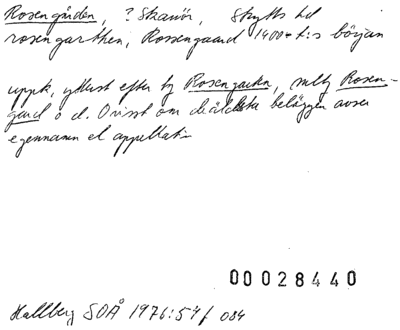 Rosengården, ? Skanör, Skytts hd
rosengarthen, Rosengaard 1400-t:s början
uppk, ytterst efter ty Rosengarten, mlty Rosen-
gard o d. Ovisst om de äldsta beläggen avser
egennamn el appellativ
00028440
Hallberg SOÅ 1976:57f 084